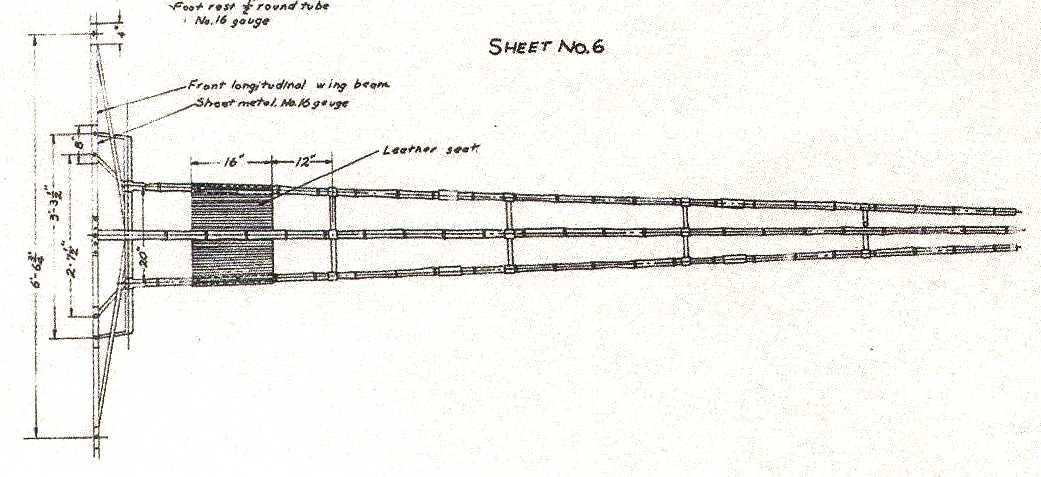 Foot rest ½ round tube
No.16 gauge
SHEET No.6
4"
Front longitudinal wing beam
Sheet metal. No.16 gauge
8"
Leather seat
16"
12"
3'-3½"
2'-7½"
20"
6'-6¾"